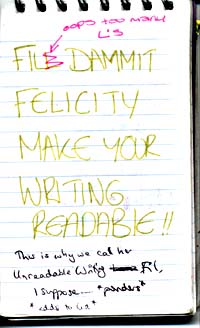 oops too many
L's
FIL DAMMIT
FELICITY
MAKE YOUR
WRITING
READABLE!!
This is why we call her
Unreadable Writing Fil,
I suppose.... *ponders*
*adds to list*